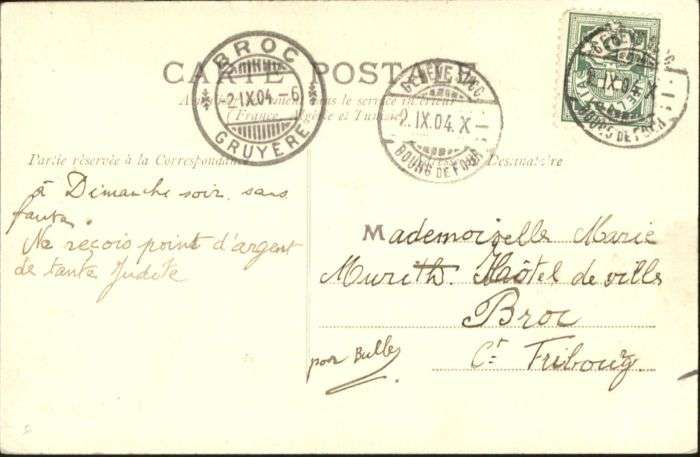 CARTE POSTALE
BROC
2.IX.04.-6
GRUYÈRE
GENÈVE
2.IX.04.X
BOURG DE FOUR
GENÈVE
2.IX.04.X
BOURG DE FOUR
service intérieur
(France, Algérie et Tunisie)
Partie réservée à la Correspondance
Destinataire
à Dimanche soir, sans
faute.
Ne reçois point d'argent
de tante Judite
Mademoiselle Marie
Murith. Hôtel de ville
Broc
pour Bulle
Ct Fribourg